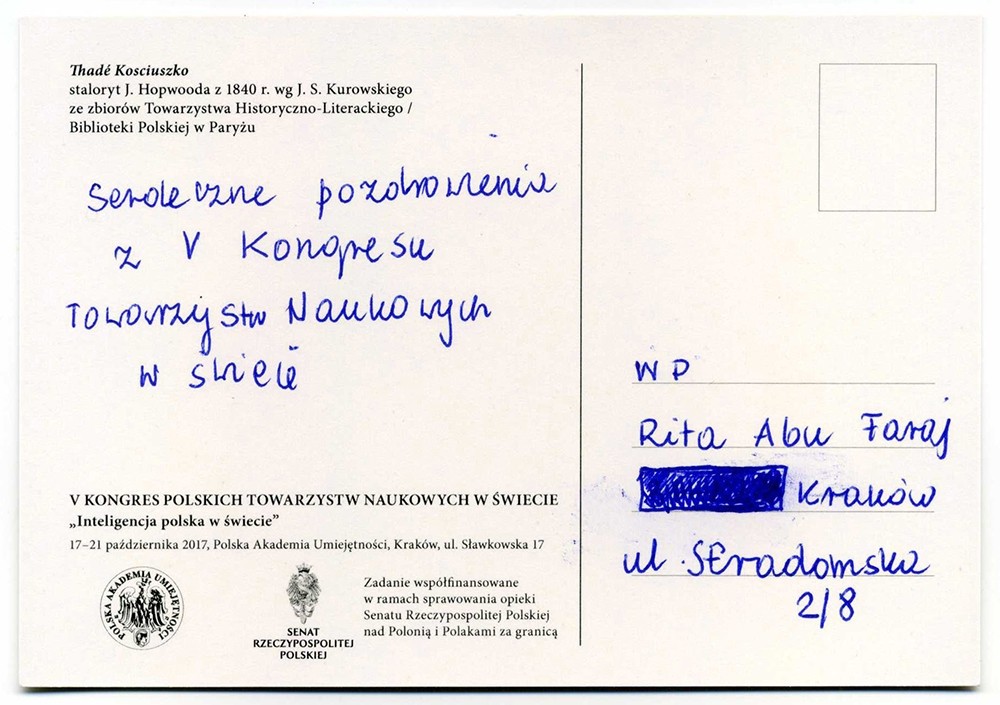 Thadé Kosciuszko
staloryt J. Hopwooda z 1840 r. wg J. S. Kurowskiego
ze zbiorów Towarzystwa Historyczno-Literackiego /
Biblioteki Polskiej w Paryżu
Serdeczne pozdrowienia
z V Kongresu
Towarzystw Naukowych
w świecie
V KONGRES POLSKICH TOWARZYSTW NAUKOWYCH W ŚWIECIE
„Inteligencja polska w świecie”
17–21 października 2017, Polska Akademia Umiejętności, Kraków, ul. Sławkowska 17
POLSKA AKADEMIA UMIEJĘTNOŚCI
SENAT
RZECZYPOSPOLITEJ
POLSKIEJ
Zadanie współfinansowane
w ramach sprawowania opieki
Senatu Rzeczypospolitej Polskiej
nad Polonią i Polakami za granicą
WP
Rita Abu Faraj
Kraków
ul. Stradomska
2/8